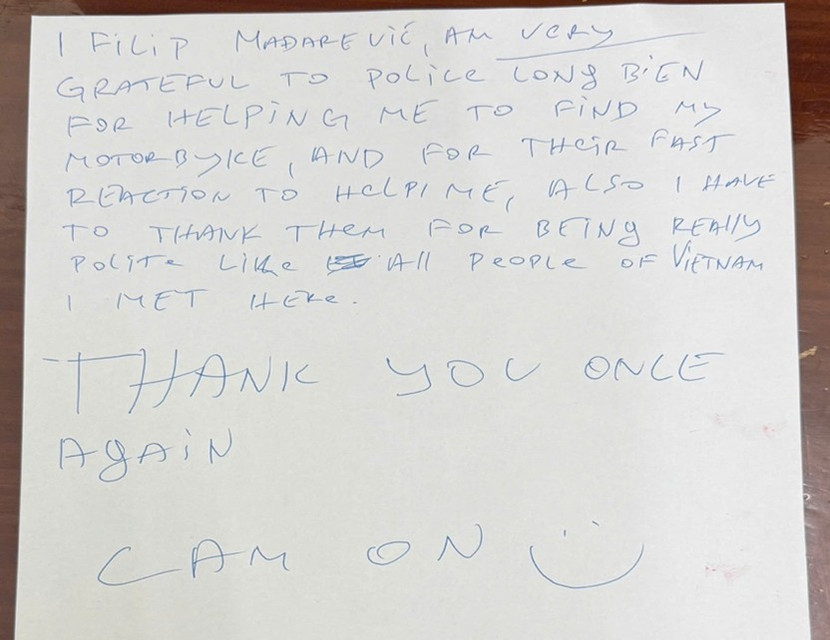 I FiLiP MADAREViĆ, AM VERY
GRATEFUL TO POLiCE LONg BiEN
FOR HELPiNG ME TO FiND My
MOTORByKE, AND FOR THEiR FAST
REACTION TO HELP ME, ALSO I HAVE
TO THANK THEM FOR BEiNg REAlly
POLiTE LiKe All PEOPLE OF ViETNAM
I MET HERe.
THANK YOU ONCE
AgAiN
CAM ON